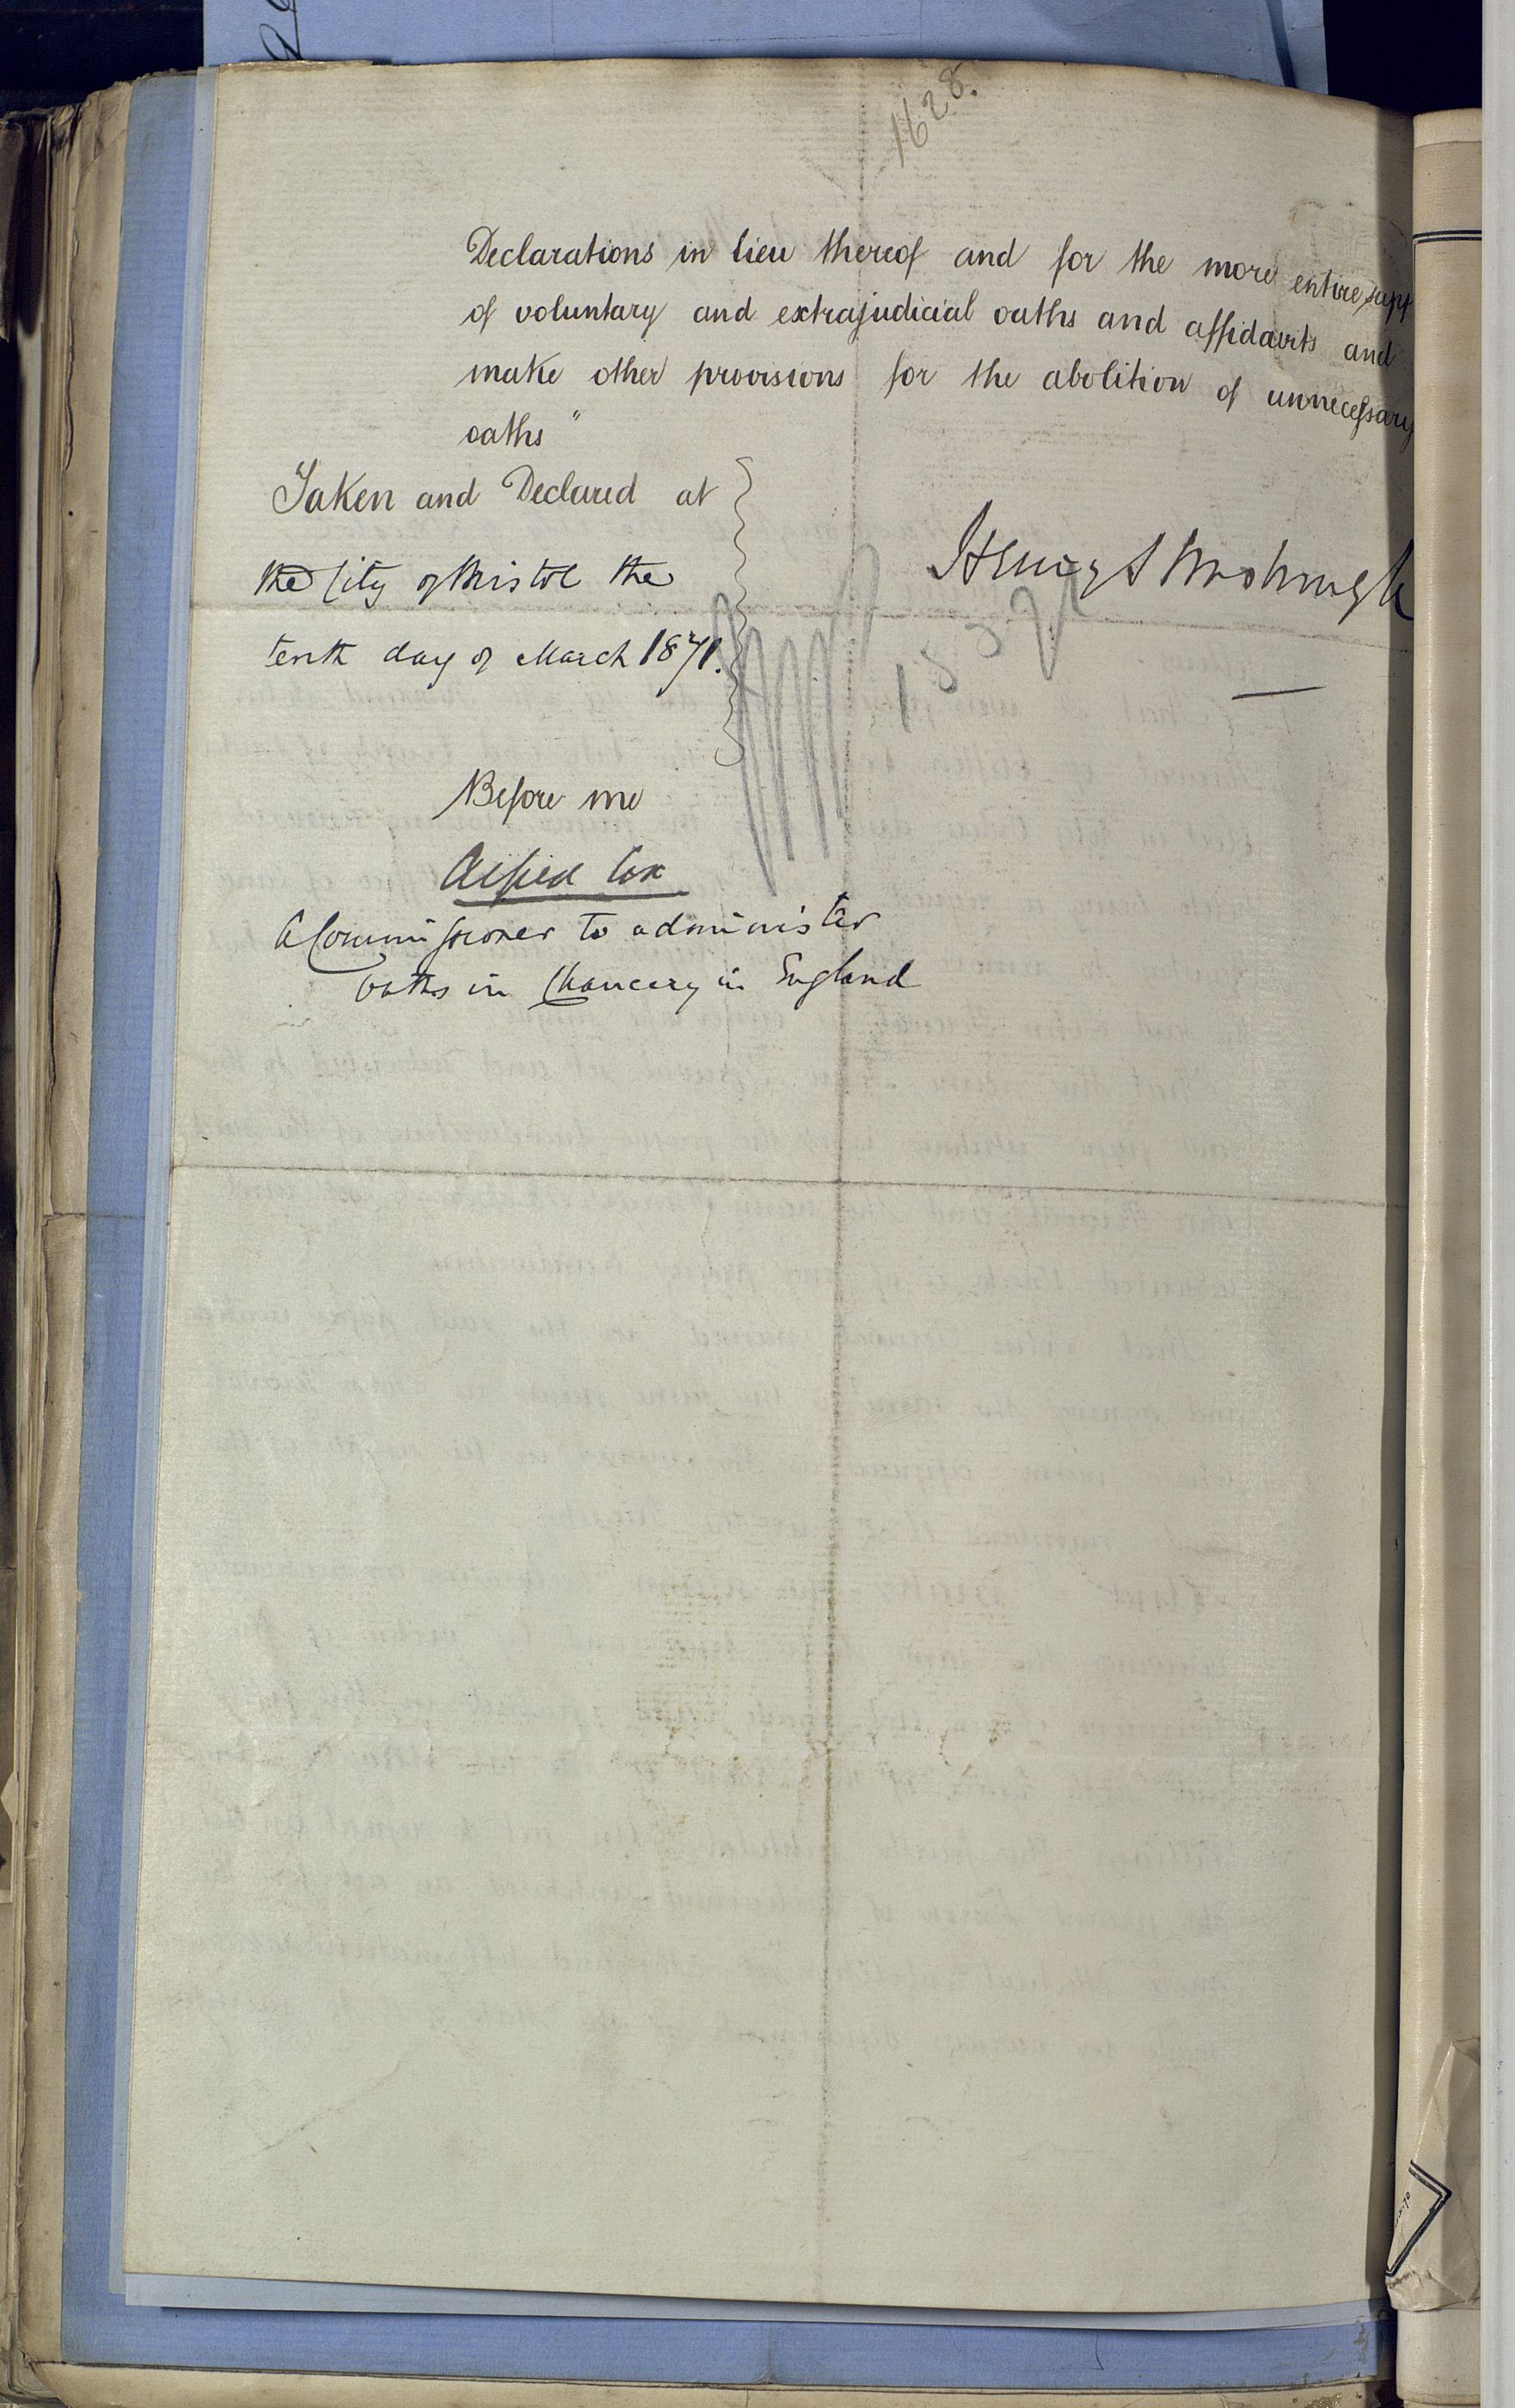 1628.
Declarations in lieu thereof and for the more entire supp
of voluntary and extrajudicial oaths and affidavits and
make other provisions for the abolition of unnecessary
oaths"
Taken and Declared at
the City of Bristol the
tenth day of March 1871.
Henry S
Before me
Alfred Cox
A Commissioner to administer
oaths in Chancery in England